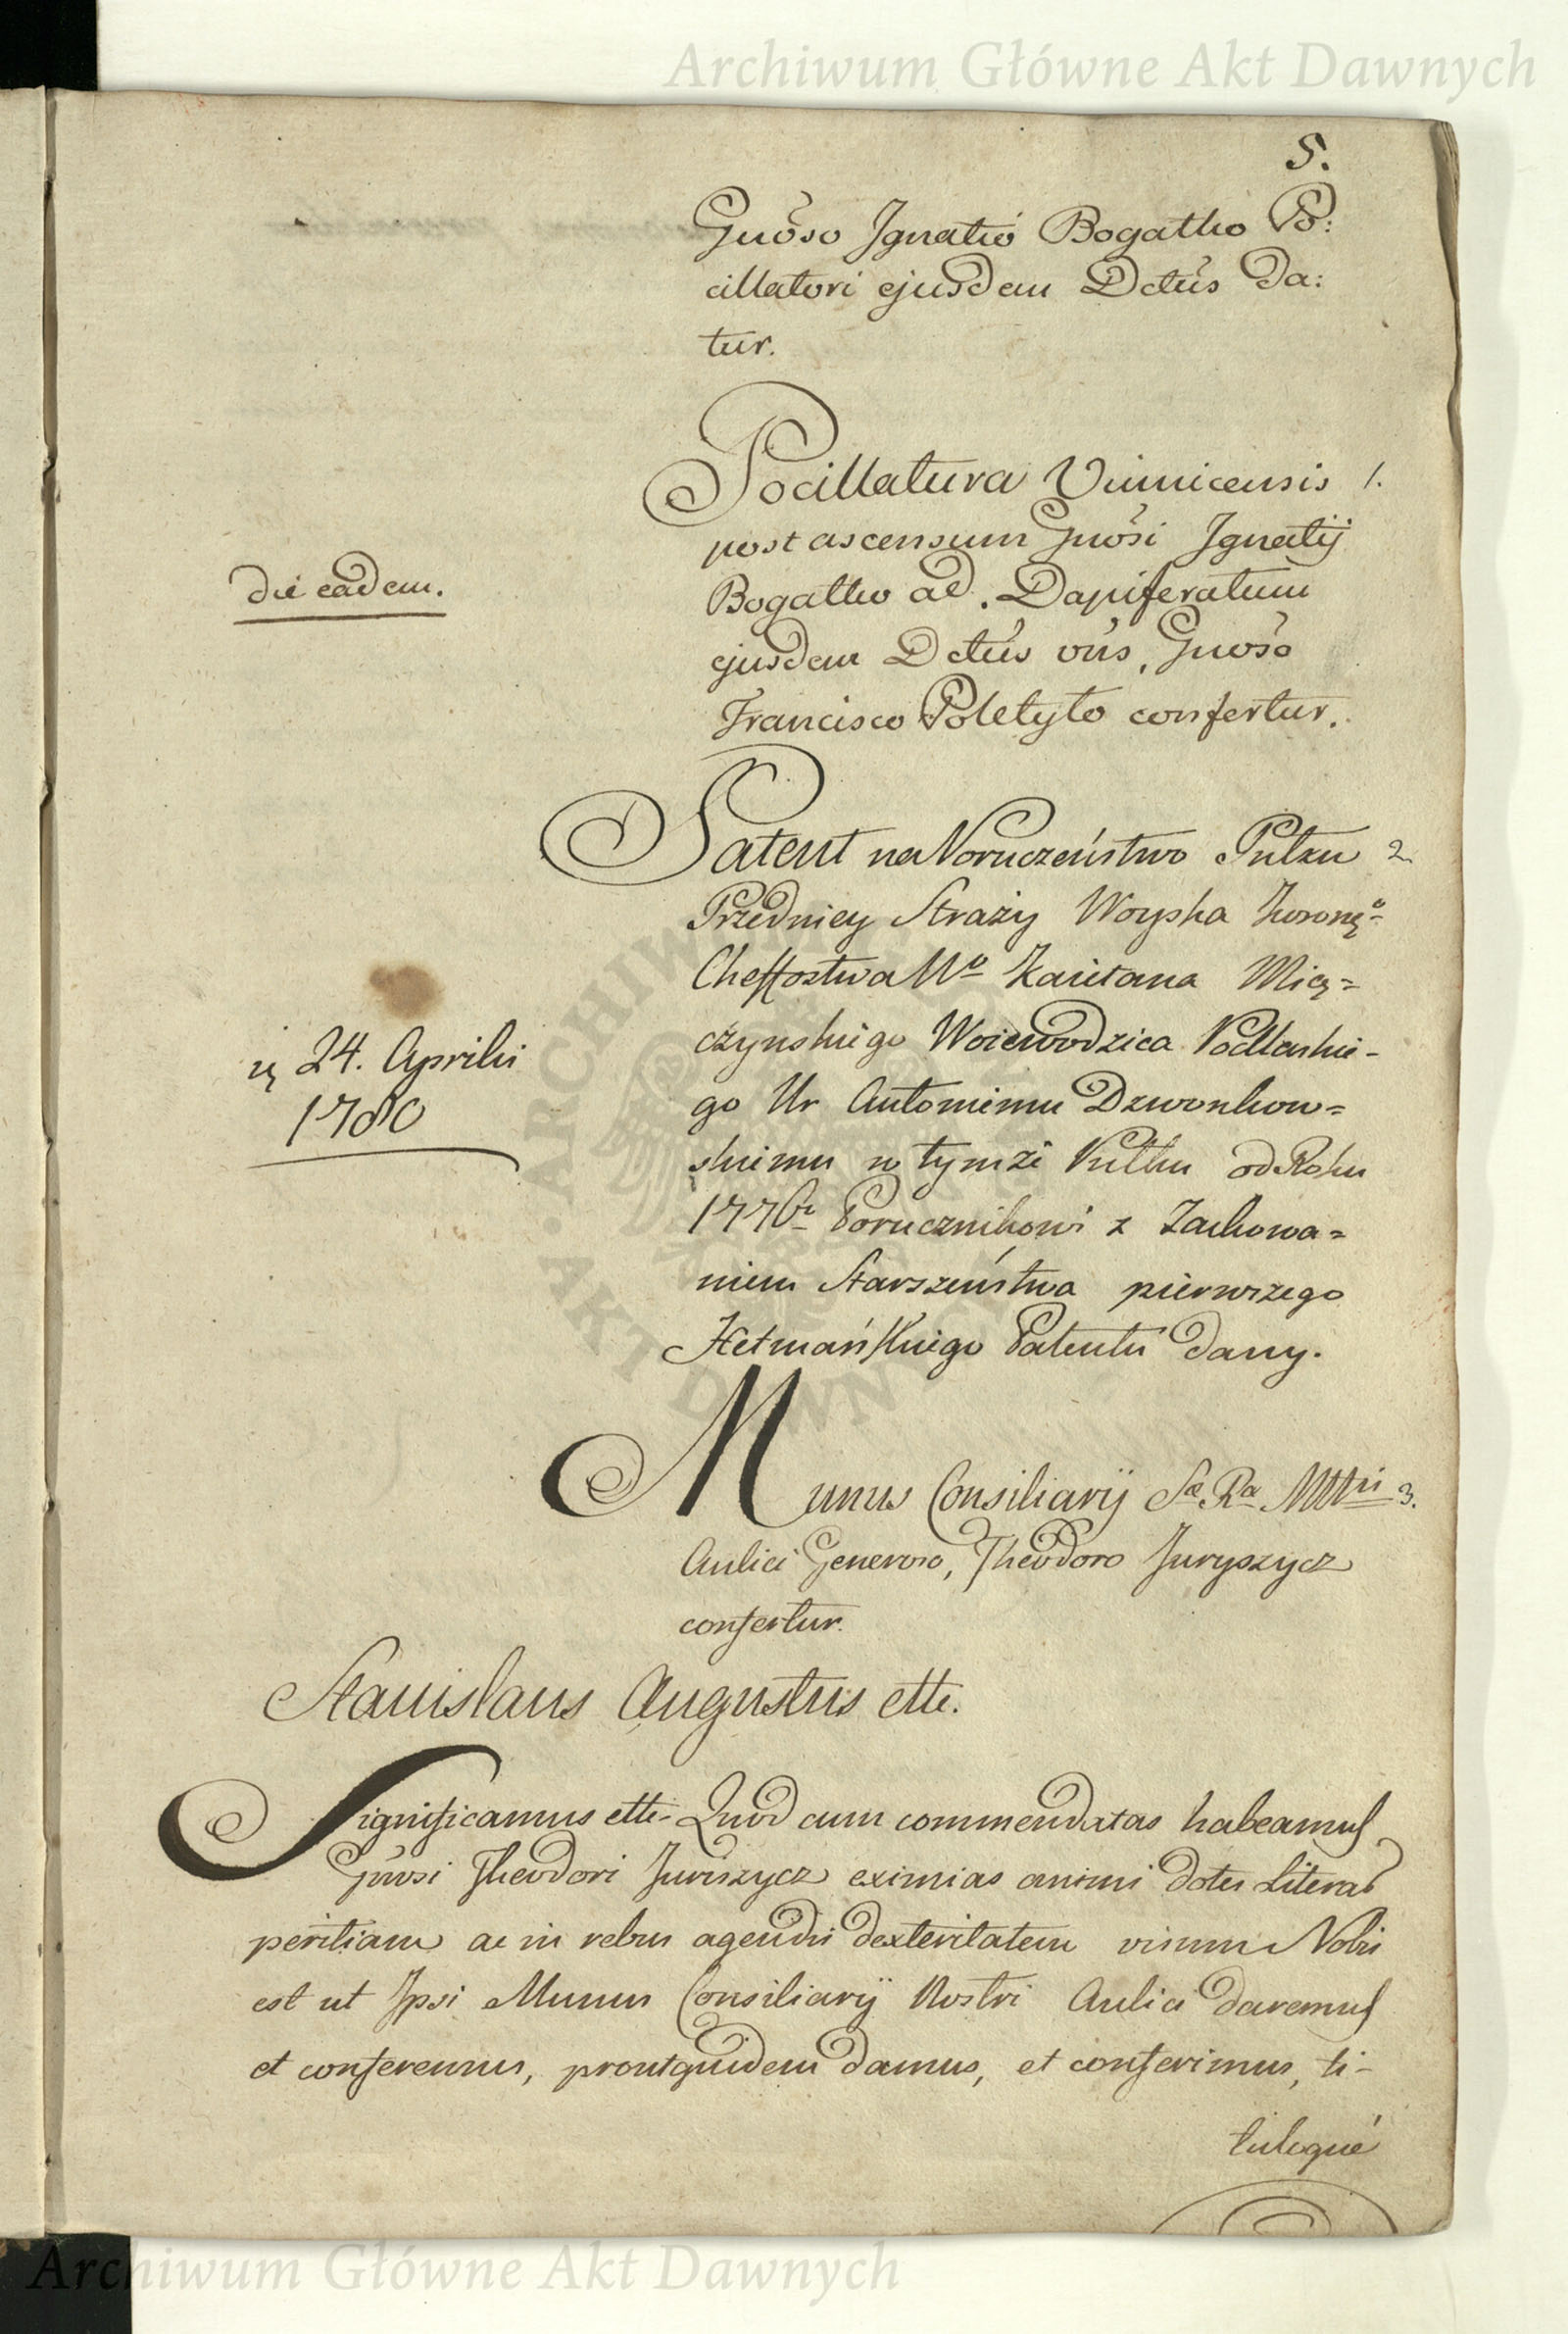 Archiwum Główne Akt Dawnych
5.
Gnõso Ignatio Bogatko Po:
cillatori ejusdem Dctũs Da:
tur.
Pocillatura Vinnicensis 1.
post ascensum Gnõsi Ignatij
die eadem.
Bogatko ad Dapiferatum
ejusdem Dctũs
Gnõso
Francisco Poletyło confertur.
Patent na Poruczeństwo Pułku 2.
Przedniey Straży Woyska Koronęº
Cheffostwa Wº Kaietana Mią=
czynskiego Woiewodzica Podlaskie-
24. Aprilis
1780
go Ur Antoniemu Dzwonkow=
skiemu w tymże Pułku od Roku
Porucznikowi z Zachowa=
niem Starszeństwa pierwszego
Hetmańskiego Patentu dany.
Munus Consiliarij Sæ Ræ Mttis 3.
Aulici Generoso, Theodoro Juryszycz
confertur.
Stanislaus Augustus ettc.
Significamus ettc. Quod cum commendatas habeamus
Gnõsi Theodori Juriszycz eximias animi dotes Literas
peritiam ac in rebus agendis dexteritatem visum Nobis
est ut Ipsi Munus Consiliarij Nostri Aulici daremus
et conferemus, prout quidem damus, et conferimus, ti-
tuloque
Archiwum Główne Akt Dawnych